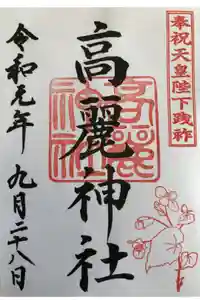 奉祝天皇陛下践祚
高麗神社
令和元年 九月二十八日